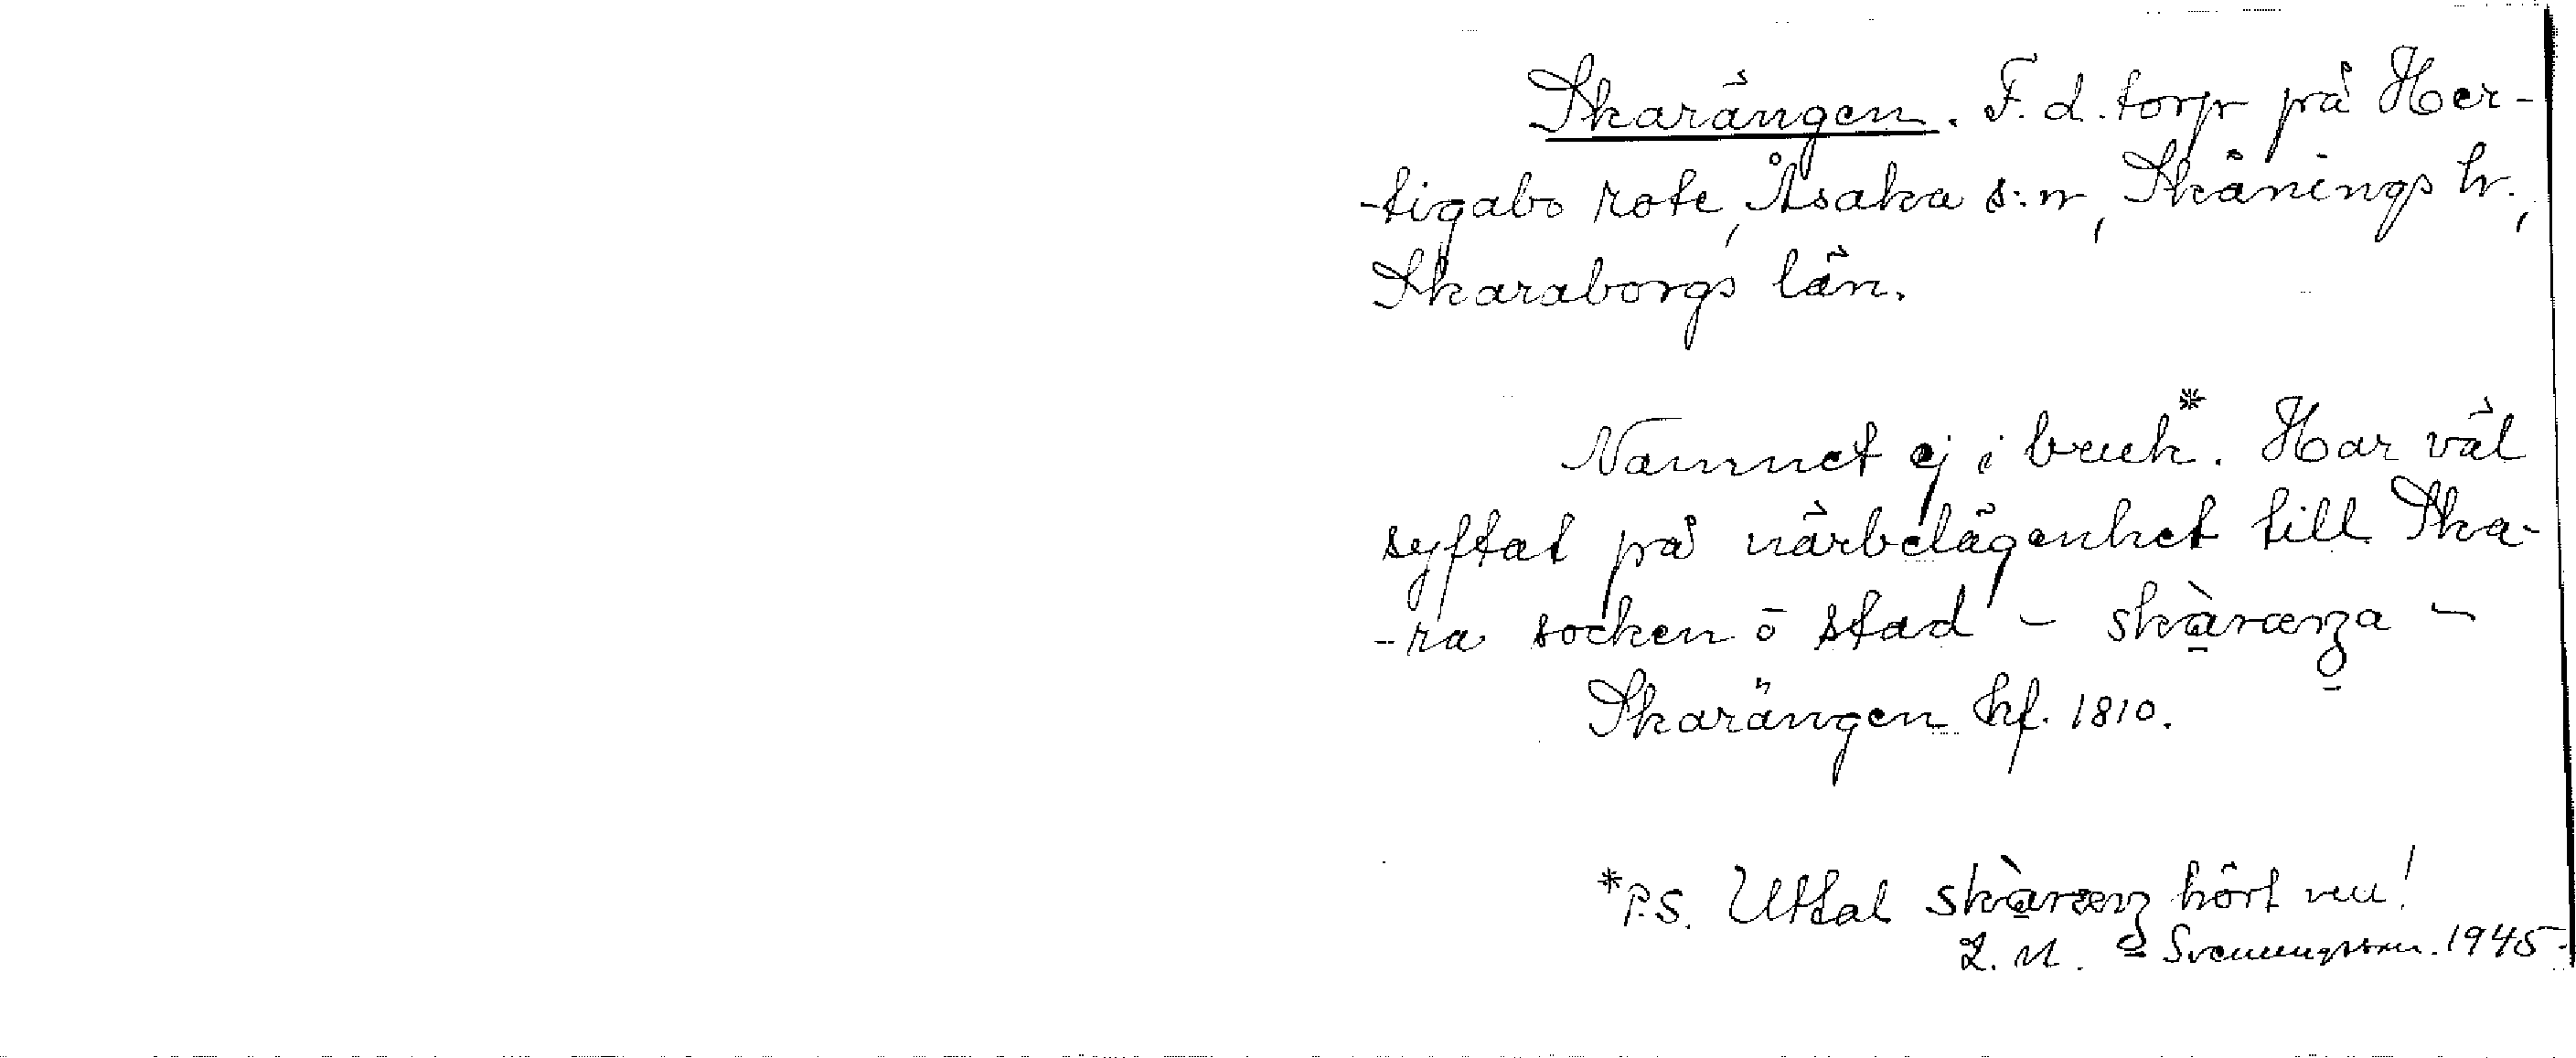 Skarängen. F. d. torp på Her-
-tigabo rote, Åsaka s:n, Skånings hr.,
Skaraborgs län.
Namnet ej i bruk*. Har väl
syftat på närbelägenhet till Ska-
-ra socken ō stad - skàræŋa -
Skarängen hf. 1810.
*P.S. Uttal skàræŋ hört nu!
L. M. Svenungsson. 1945.